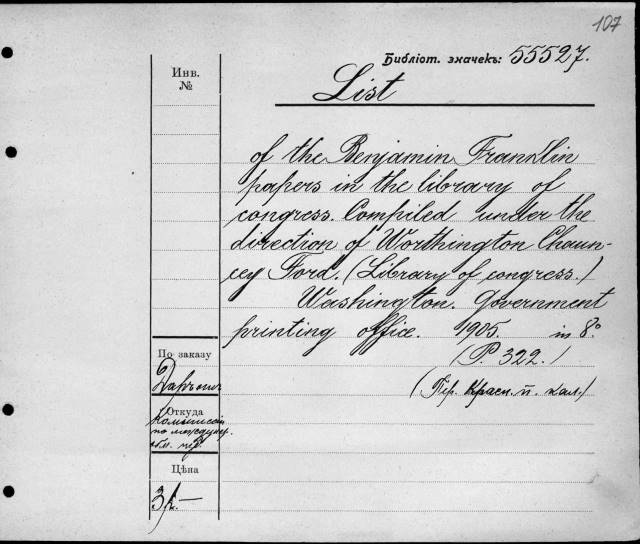 107
Библіот. значекъ: 55527.
Инв.
№
List
of the Benjamin Franklin
papers in the library of
congress. Compiled under the
direction of Worthington Chaun-
cey Ford. (Library of congress.)
Washington. Government
printing office. 1905. in 8°
(P. 322.)
(Пер. Красн. п. кал.)
По заказу
Даръ
Откуда
Комиссіи
по междунар.
обм. изд.
Цѣна
3 р. —